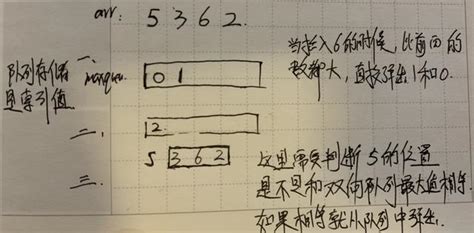 arr: 5 3 6 2.
队列存储
是索引值
一、maxqueue
0 1
当插入6的时候,比前面的
数都大,直接弹出1和0.
二、
2
5 3 6 2
三、
这里需要判断5的位置
是不是和双向队列最大值相等
如果相等就从队列中弹出.